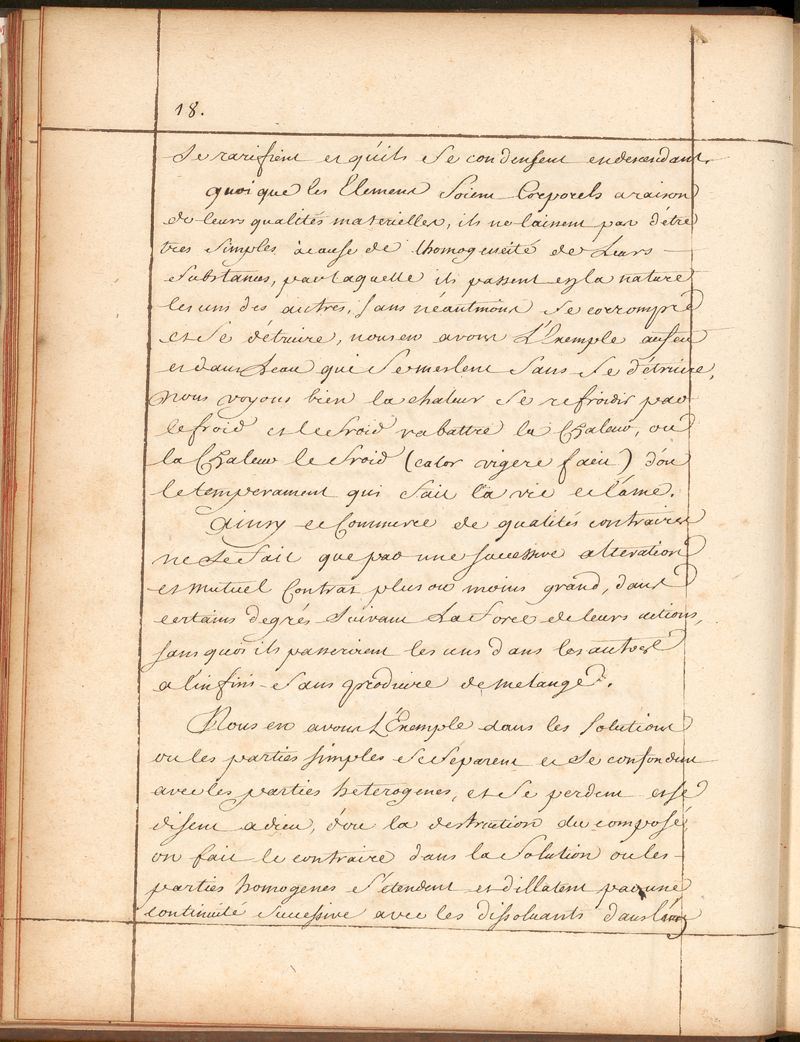 18.
se rarifient et qu'ils se condensent endescendant.
quoi que les Elemens Soient Corporels a raison
de leurs qualités materielles, ils ne laissent pas d'être
tres simples àcause de lhomogeneité de Leurs
Substances, par laquelle ils passent en la nature
les uns des autres, sans néantmoins se corrompre
et se détruire, nous en avons L'Exemple au feu
et dans Leau qui Se meslent Sans Se détruire,
nous voyons bien la chaleur se refroidir par
le froid et le froid rabattre la Chaleur, ou
la Chaleur le froid (calor vigere facit) d'ou
le temperament qui fait la vie et l'ame.
Ainsy le Commerce de qualités contraires
ne Se fait que par une successive alteration
et mutuel Contrat plus ou moins grand, dans
certains degrés suivant La force de leurs actions,
sans quoi ils passeroient les uns dans les autres
a linfini sans produire de melange.
Nous en avons L'Exemple dans les solutions
ou les parties simples se separent et se confondent
avec les parties heterogenes, et se perdent et se
disent adieu, d'ou la destruction du composé,
on fait le contraire dans la solution ou les
parties homogenes s'étendent et dillatent par une
continuité successive avec les dissoluants dans